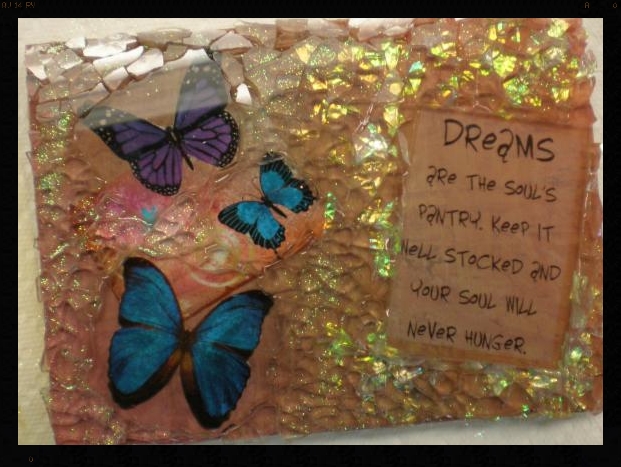 DReaMS
aRe THE SOUL'S
PaNTRY. KeeP IT
WeLL STOCKeD aND
YOUR SOUL WILL
NeVeR HUNGeR.